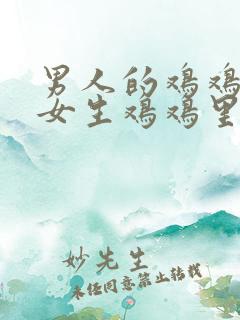 男人的鸡鸡
女生鸡鸡里
妙先生
未经同意禁止转载